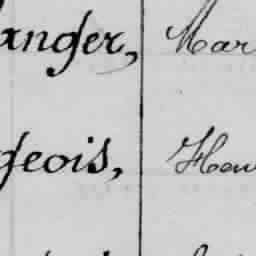 anger, Mar
geois, Hen